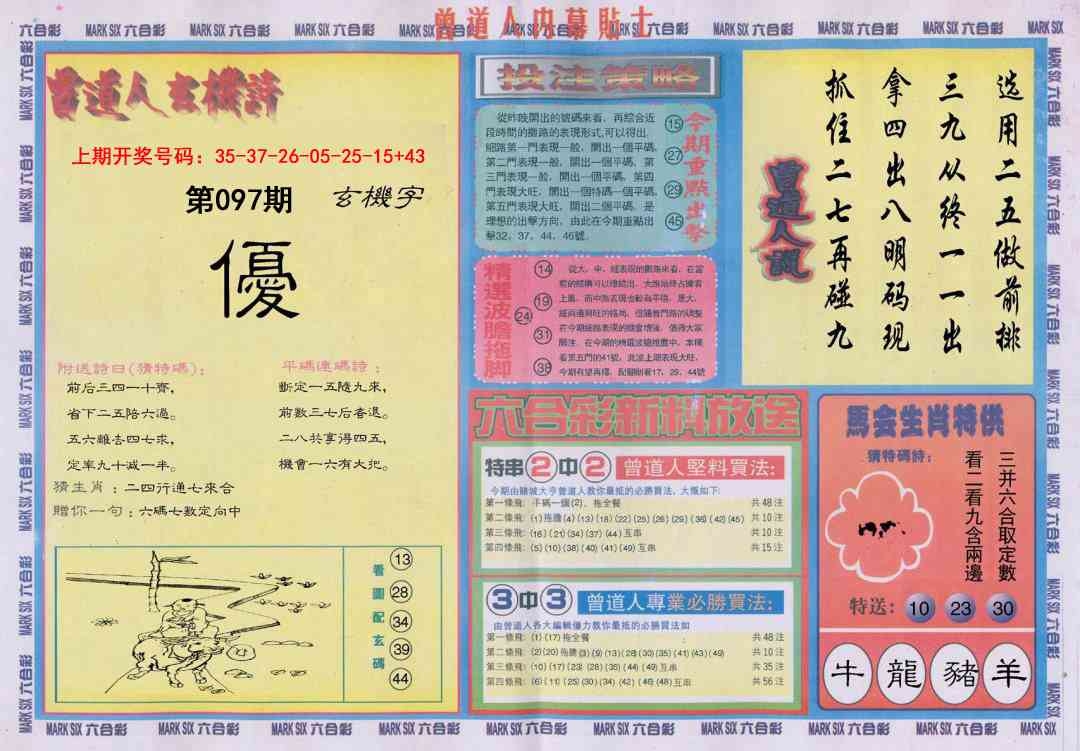 曾道人内幕貼士
六合彩 MARK SIX 六合彩 MARK SIX 六合彩 MARK SIX 六合彩 MARK SIX 六合彩 MARK SIX 六合彩 MARK SIX 六合彩 MARK SIX 六合彩 MARK SIX 六合彩 MARK SIX
曾道人玄機詩
上期开奖号码：35-37-26-05-25-15+43
第097期 玄機字
優
附送詩曰(猜特碼)：
前后三四一十齊，
省下二五陪六過。
五六離去四七求，
定率九十减一半。
平碼連碼詩：
斷定一五隨九來，
前數三七后春退。
二八共享得四五，
機會一六有大犯。
猜生肖：二四行通七來合
贈你一句：六碼七數定向中
看圖配玄碼
13
28
34
39
44
投注策略
從昨晚開出的號碼來看，再綜合近
段時間的攤路的表現形式,可以得出，
細路第一門表現一般，開出一個平碼，
第二門表現一般，開出一個平碼，第
三門表現一般，開出一個平碼，第四
門表現大旺，開出一個特碼一個平碼，
第五門表現大旺，開出二個平碼，是
理想的出擊方向，由此在今期重點出
擊32，37，44，46號。
今期重點出擊
15
27
29
45
精選波膽拖脚
14
19
24
31
38
看第五門的41號，此波上期表現大旺，
今期有望再爆，配腳則看17、29、44號
曾道人說
选用二五做前排
三九从终一一出
拿四出八明码现
抓住二七再碰九
六合彩新料放送
特串2中2 曾道人堅料買法：
今期由賭城大亨曾道人教你最抵的必勝買法，大慨如下：
第一條飛：平碼一個(2)，拖全餐 共48注
第二條飛：(1)拖膽(4)(13)(18)(22)(25)(26)(29)(36)(42)(45) 共10注
第三條飛：(16)(21)(34)(37)(44)互串 共10注
第四條飛：(5)(10)(38)(40)(41)(49)互串 共15注
3中3 曾道人專業必勝買法：
由曾道人各大編輯僮力教你最抵的必勝買法如
第一條飛：(1)(17)拖全餐 共48注
第二條飛：(2)(20)拖膽(3)(9)(13)(28)(30)(35)(41)(43)(49) 共10注
第三條飛：(10)(17)(23)(28)(36)(44)(49)互串 共35注
第四條飛：(6)(11)(25)(30)(34)(42)(46)(48)互串 共56注
馬会生肖特供
猜特碼詩：
三并六合取定數
看二看九含兩邊
特送：10 23 30
牛 龍 豬 羊
MARK SIX 六合彩 MARK SIX 六合彩 MARK SIX 六合彩 MARK SIX 六合彩 MARK SIX 六合彩 MARK SIX 六合彩 MARK SIX 六合彩 MARK SIX 六合彩 MARK SIX 六合彩 MARK SIX